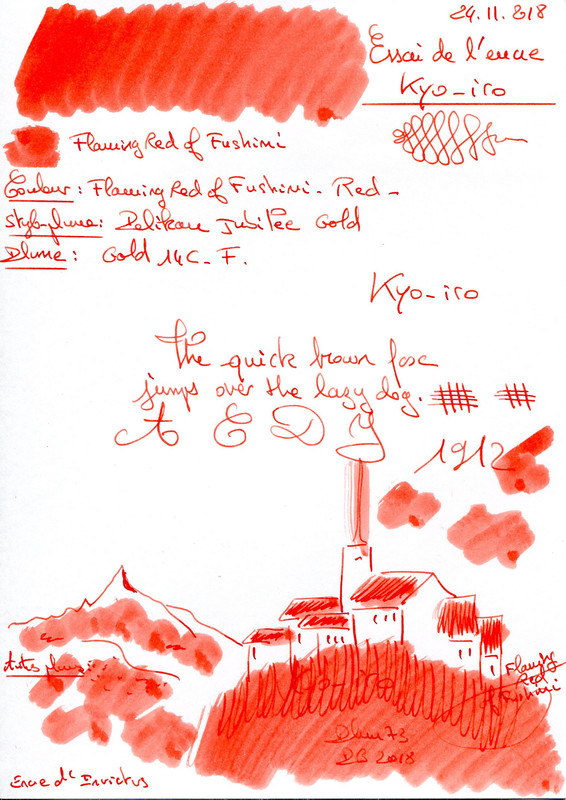 24.11.018
Essai de l'encre
Kyo-iro
Flaming Red of Fushimi
Couleur : Flaming Red of Fushimi - Red -
Stylo-plume : Pelikan Jubilee Gold
Plume : Gold 14C - F.
Kyo-iro
The quick brown fox
jumps over the lazy dog.
A E D Y
1912
Flaming
Red
of Fushimi
DB 2018
Encre de Invictus